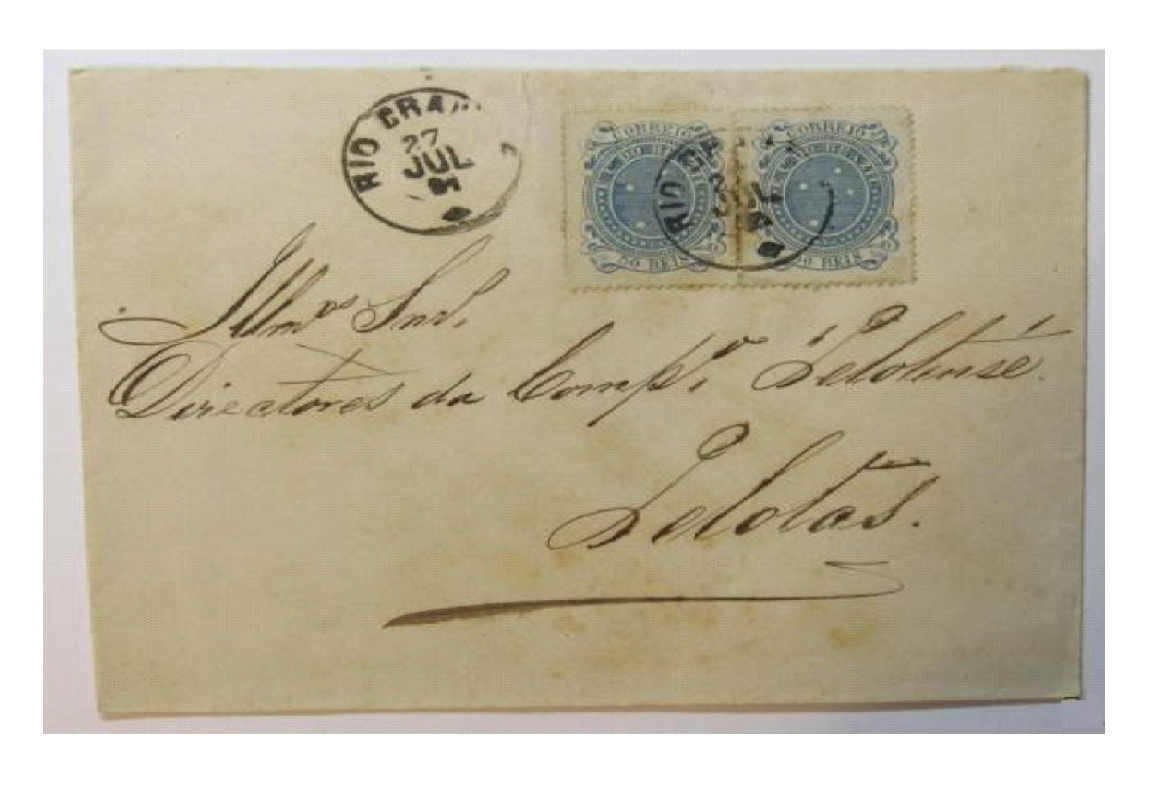 RIO GRAN
27
JUL
91
CORREIO
E. U. DO BRAZIL
50 REIS
CORREIO
E. U. DO BRAZIL
50 REIS
RIO GR
Illmos Snrs.
Directores da Comp.ª Pelotense.
Pelotas.